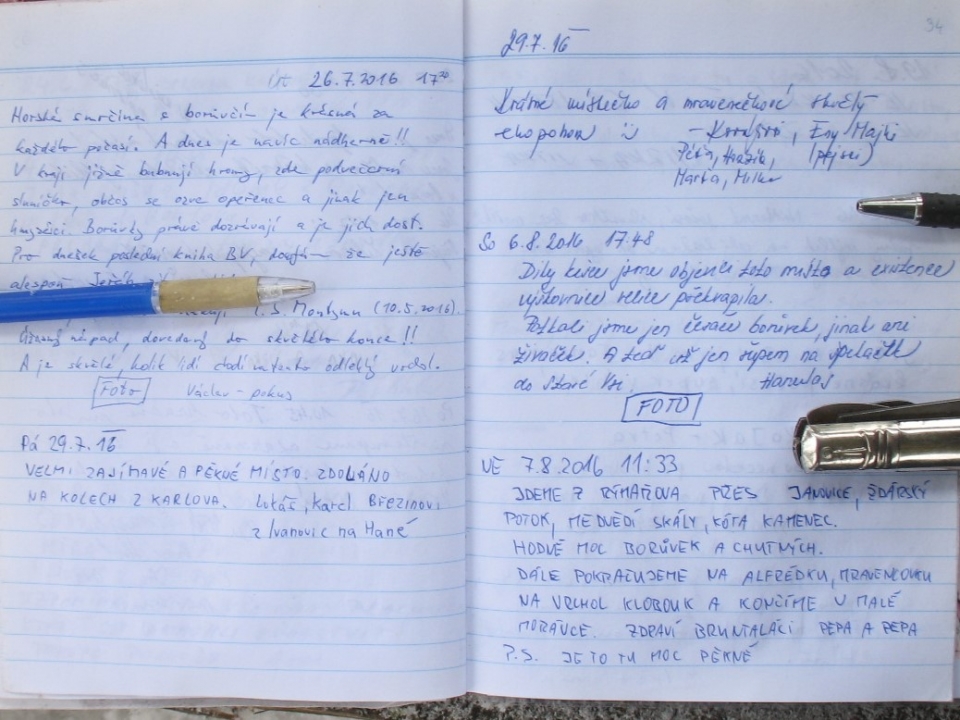 út 26.7.2016 17²⁰
Horská smrčina s borůvčím je krásná za
každého počasí. A dnes je navíc nádherně!!
V kraji jižně bubnují hromy, zde podvečerní
sluníčko, občas se ozve opeřenec a jinak jen
hmyzáci. Borůvky právě dozrávají a je jich dost.
Pro dnešek poslední kniha BV, doufám že ještě
alespoň
(10.5.2016).
nápad, dovedený do skvělého konce!!
A je skvělé, kolik lidí chodí na tento odlehlý vrchol.
Foto Václav - pokus
Pá 29.7.16
VELMI ZAJÍMAVÉ A PĚKNÉ MÍSTO. ZDOLÁNO
NA KOLECH Z KARLOVA. Lukáš, Karel BŘEZINOVI
z Ivanovic na Hané
94
29.7.16
Krásné místečko a mravenečkové skvělý
ekopohon
Meky
So 6.8.2016 17:48
Díky kešce jsme objevili toto místo a existence
vrcholovnice velice překvapila.
Potkali jsme jen česače borůvek, jinak ani
živáček. A teď už jen šupem na špekáčky
do Staré Vsi
FOTO
NE 7.8.2016 11:33
JDEME Z RÝMAŘOVA PŘES JANOVICE, ŽDÁRSKÝ
POTOK, MEDVĚDÍ SKÁLY, KÓTA KAMENEC.
HODNĚ MOC BORŮVEK A CHUTNÝCH.
DÁLE POKRAČUJEME NA ALFRÉDKU, MRAVENCOVKU
NA VRCHOL KLOBOUK A KONČÍME V MALÉ
MORÁVCE. ZDRAVÍ BRUNTALÁCI PEPA A PEPA
P.S. JE TO TU MOC PĚKNÉ